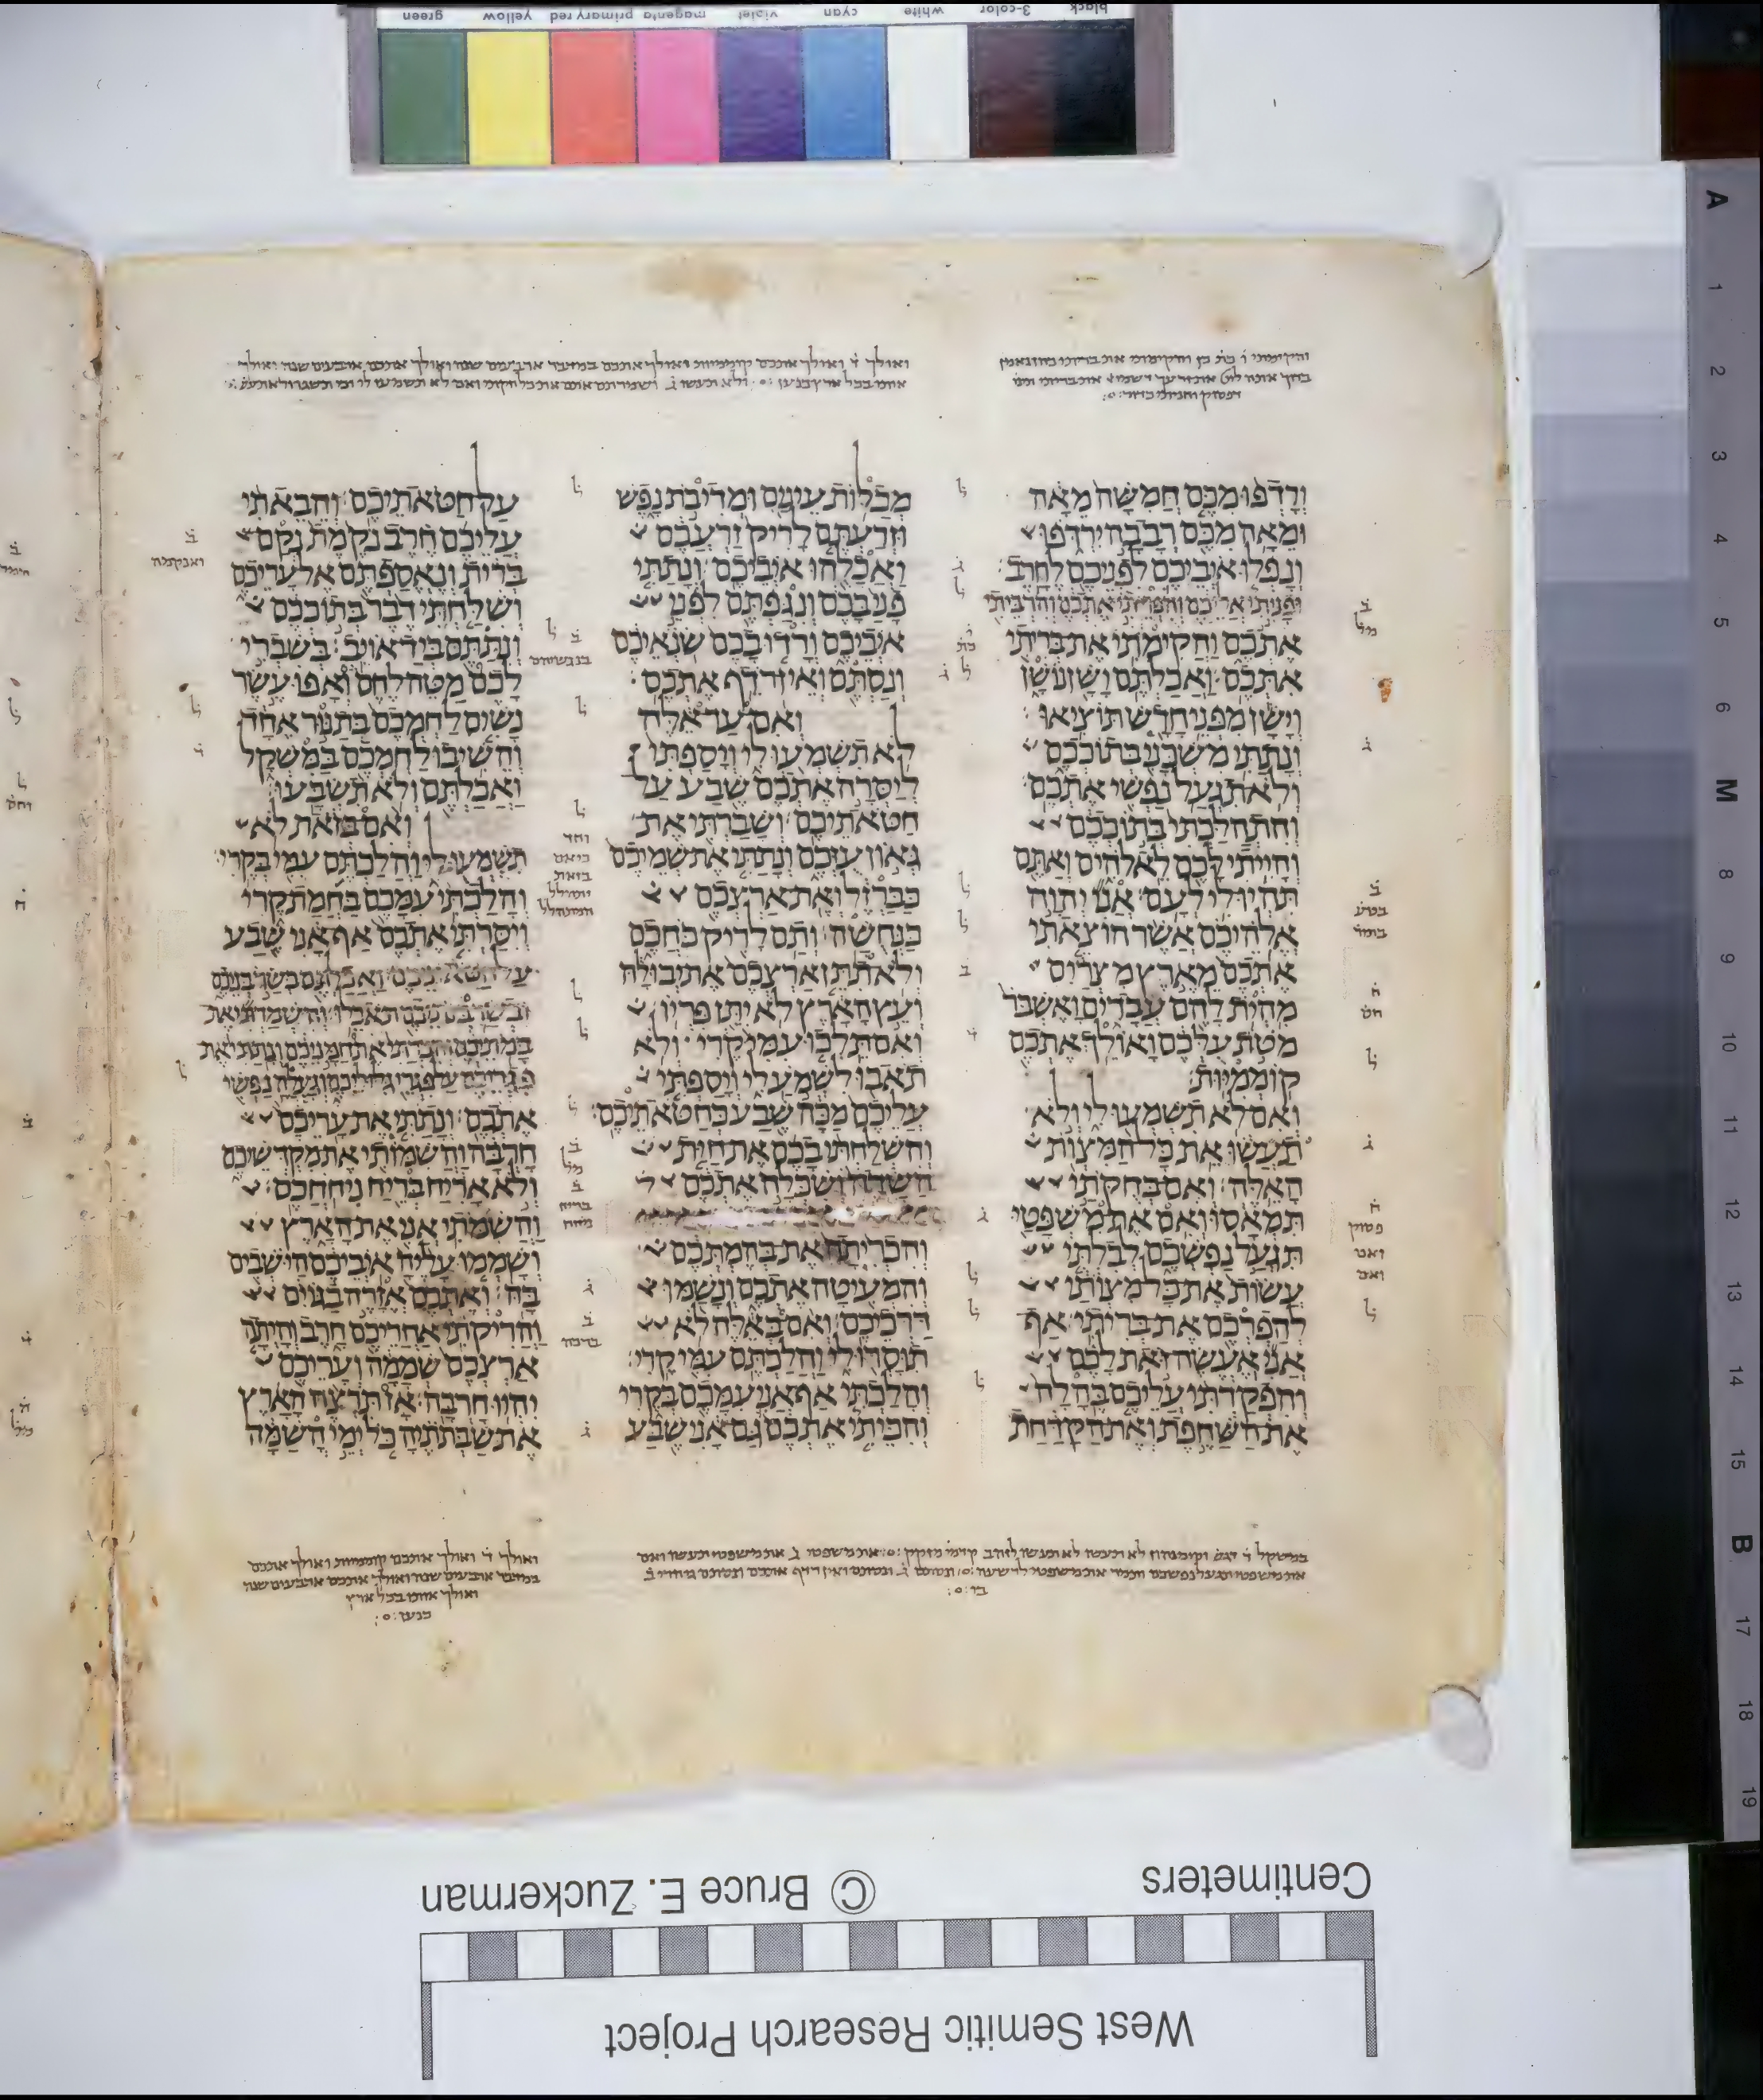 black 3-color white cyan violet magenta primary red yellow green
A 1 2 3 4 5 6 M 8 9 10 11 12 13 14 15 B 17 18 19
ואולך ד ואולך אתכם קוממיות ואולך אתכם במדבר ארבעים שנה ואולך אתכם ארבעים שנה ואולך
ורדפו מכם חמשה מאה
ומאה מכם רבבה ירדפו
ונפלו איביכם לפניכם לחרב
ופניתי אליכם והפריתי אתכם והרביתי
אתכם והקימתי את בריתי
אתכם ואכלתם ישן נושן
וישן מפני חדש תוציאו
ונתתי משכני בתוככם
ולא תגעל נפשי אתכם
והתהלכתי בתוככם
והייתי לכם לאלהים ואתם
תהיו לי לעם אני יהוה
אלהיכם אשר הוצאתי
אתכם מארץ מצרים
מהית להם עבדים ואשבר
מטת עלכם ואולך אתכם
קוממיות
ואם לא תשמעו לי ולא
תעשו את כל המצות
האלה ואם בחקתי
תמאסו ואם את משפטי
תגעל נפשכם לבלתי
עשות את כל מצותי
להפרכם את בריתי אף
אני אעשה זאת לכם
והפקדתי עליכם בהלה
את השחפת ואת הקדחת
מכלות עינים ומדיבת נפש
וזרעתם לריק זרעכם
ואכלהו איביכם ונתתי
פני בכם ונגפתם לפני
איביכם ורדו בכם שנאיכם
ונסתם ואין רדף אתכם
ואם עד אלה
לא תשמעו לי ויספתי
ליסרה אתכם שבע על
חטאתיכם ושברתי את
גאון עזכם ונתתי את שמיכם
כברזל ואת ארצכם
כנחשה ותם לריק כחכם
ולא תתן ארצכם את יבולה
ועץ הארץ לא יתן פריו
ואם תלכו עמי קרי ולא
תאבו לשמע לי ויספתי
עליכם מכה שבע כחטאתיכם
והשלחתי בכם את חית
השדה ושכלה אתכם
והכריתה את בהמתכם
והמעיטה אתכם ונשמו
דרכיכם ואם באלה לא
תוסרו לי והלכתם עמי קרי
והלכתי אף אני עמכם בקרי
והכיתי אתכם גם אני שבע
על חטאתיכם והבאתי
עליכם חרב נקמת נקם
ברית ונאספתם אל עריכם
ושלחתי דבר בתוככם
ונתתם ביד אויב בשברי
לכם מטה לחם ואפו עשר
נשים לחמכם בתנור אחד
והשיבו לחמכם במשקל
ואכלתם ולא תשבעו
ואם בזאת לא
תשמעו לי והלכתם עמי בקרי
והלכתי עמכם בחמת קרי
ויסרתי אתכם אף אני שבע
על חטאתיכם ואכלתם בשר בניכם
ובשר בנתיכם תאכלו והשמדתי את
במתיכם והכרתי את חמניכם ונתתי את
פגריכם על פגרי גלוליכם וגעלה נפשי
אתכם ונתתי את עריכם
חרבה והשמותי את מקדשיכם
ולא אריח בריח ניחחכם
והשמתי אני את הארץ
ושממו עליה איביכם הישבים
בה ואתכם אזרה בגוים
והריקתי אחריכם חרב והיתה
ארצכם שממה ועריכם
יהיו חרבה אז תרצה הארץ
את שבתתיה כל ימי השמה
ואולך ד ואולך אתכם קוממיות ואולך אתכם
במדבר ארבעים שנה ואולך אתכם ארבעים שנה
ואולך אותו בכל ארץ
כנען
Centimeters
© Bruce E. Zuckerman
West Semitic Research Project